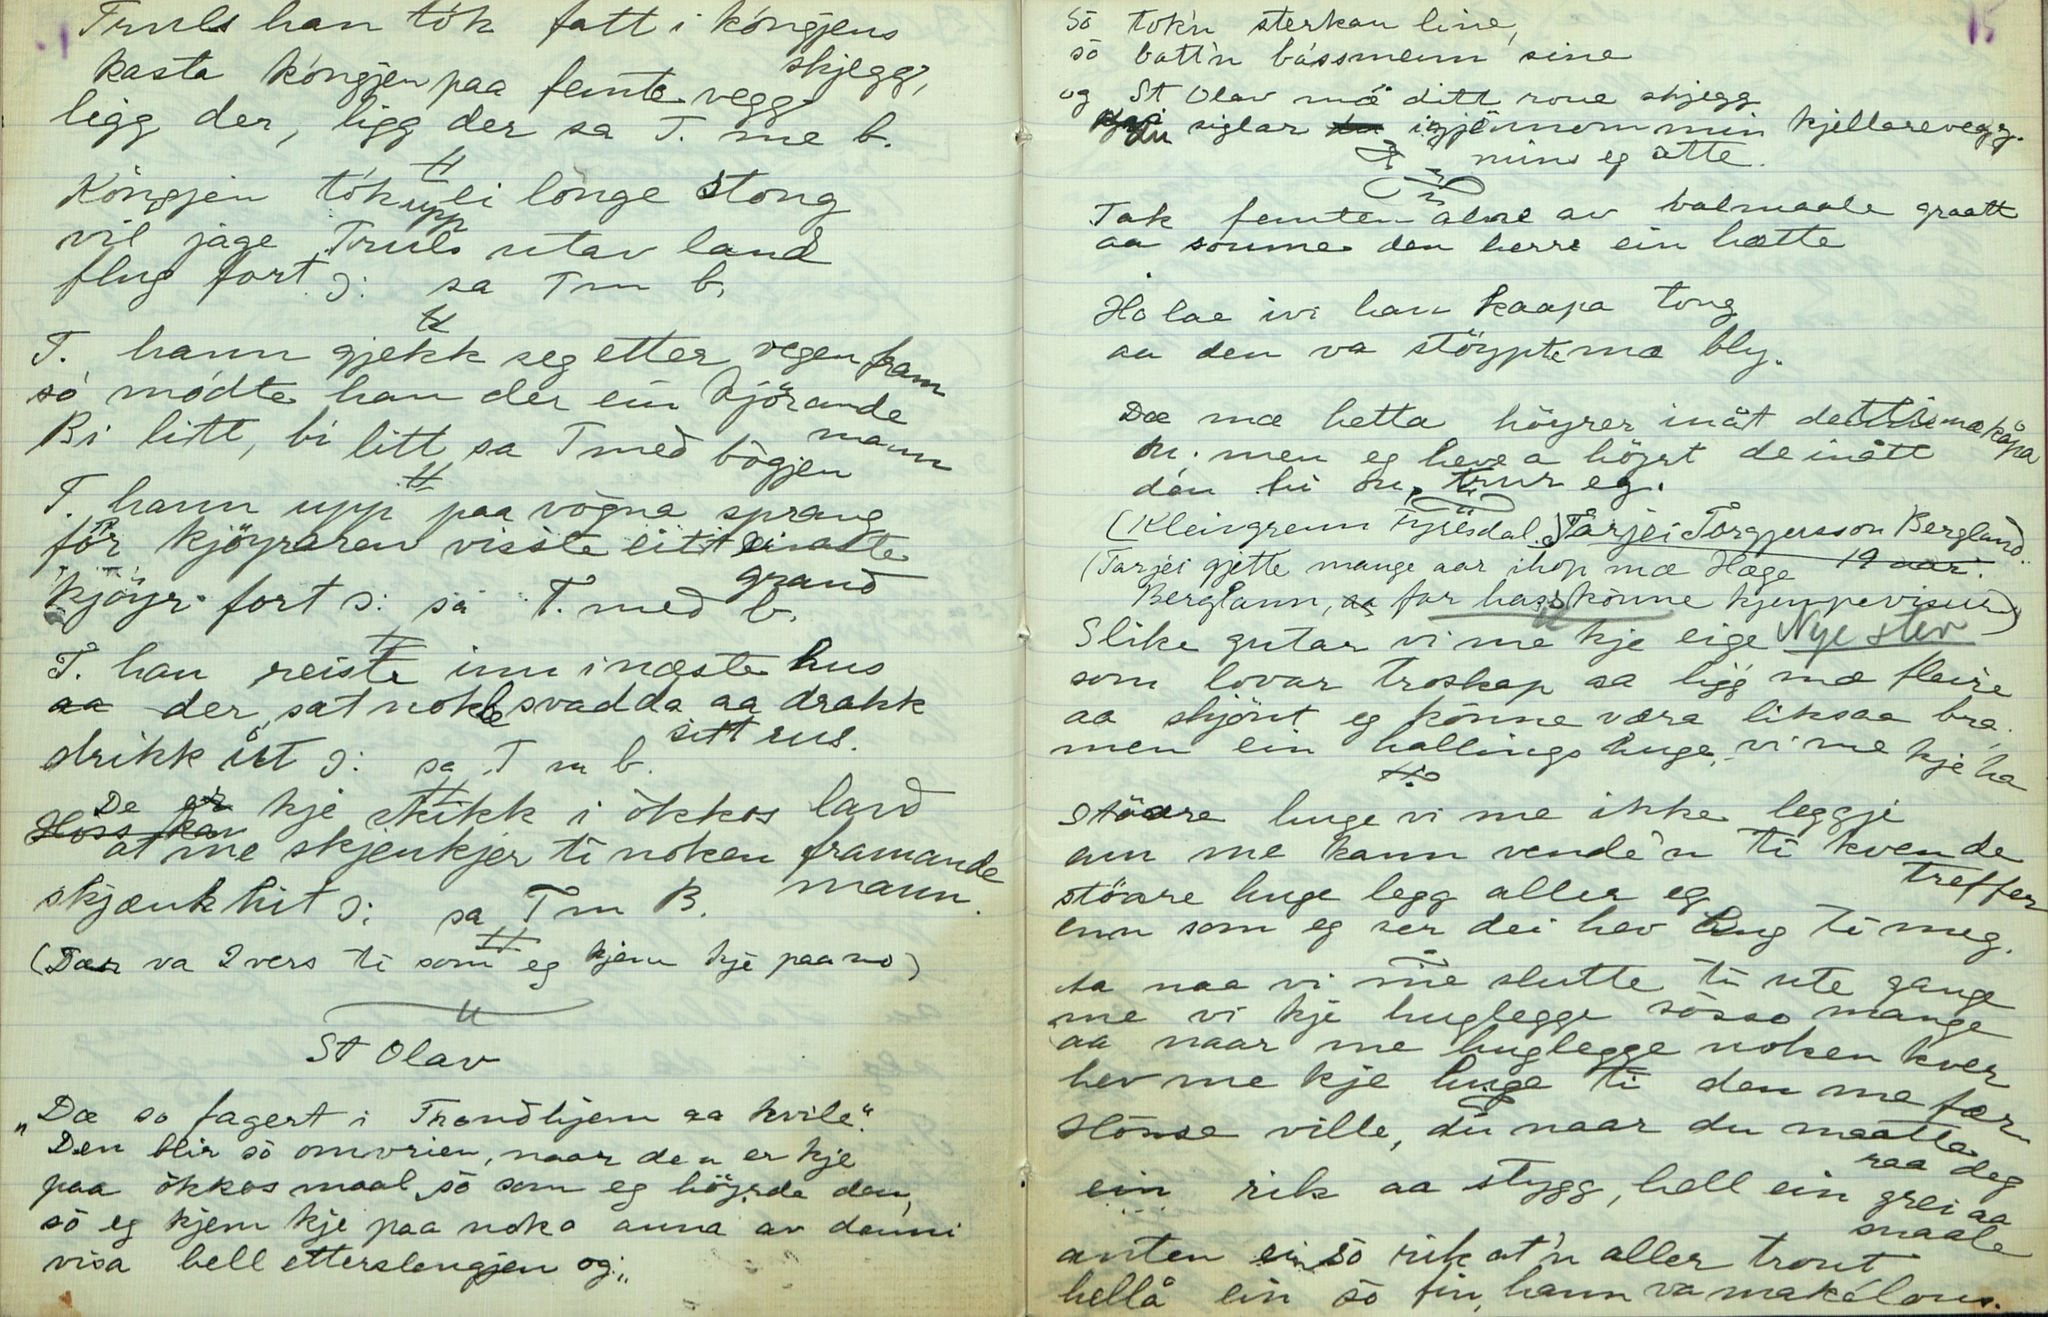 Truls han tók fatt i kóngjens
skjegg,
kasta kóngjen paa femte vegg
ligg der, ligg der sa T. me b.
Kóngjen tók upp ei lònge stong
vil jage Truls utav land
flug fort :: sa T m b.
T. hann gjekk seg etter vegen fram
só mødte han der ein kjörande
mann
Bi litt, bi litt sa T med bògjen
T. hann upp paa vògna sprang
för kjöyraren visste eitt einaste
grand
kjöyr fort :: sa T. med b.
T. han reiste inn i næste hus
aa der sat nokke svadda aa drakk
sitt rus.
drikk út :: sa T m b.
De er kje skikk i òkkos land
at me skjenkjer ti noken framande
mann.
skjænk hit :: sa T m B.
(Dær va 2 vers ti som eg kjem kje paa no)
St Olav
„Dæ so fagert i Trondhjem aa kvile."
Den blir sò omvrien, naar den er kje
paa òkkos maal, sò som eg höyrde den,
sò eg kjem kje paa noko anna av denni
visa hell etterslengjen og„
Sò tok'n sterkan line,
sò batt'n bássmenn sine
og St Olav mæ ditt roue skjegg
du siglar igjönnom min kjellarevegg.
mins eg atte.
Tak femten alne av valmaale graatt
aa soume den herre ein hætte
Ho lae ivi han kaapa tong
aa den va stöypte mæ bly.
Dæ mæ hetta höyrer inåt mæ kåpa
òu. men eg heve a höyrt de inått
dán hi òu, trur eg.
(Kleingrenn Fyresdal. Tarjei Torgjersson Bergland.
19 aar.
(Tarjei gjette mange aar ihop mæ Hæge
Berglann, far hass kònne kjempevisur)
Nye stev
Slike gutar vi me kje eige
som lovar troskap sa ligg mæ fleire
aa skjönt eg kònne væra liksaa bra,
men ein hallings huge, vi me kje ha
Stöare huge vi me ikke leggje
enn me kann vende'n ti kvende
treffer
stöare huge legg aller eg
enn som eg ser dei hev hug ti meg.
Aa naa vi me slutte ti ute gange
me vi kje huglegge sòsso mange
aa naar me huglegge noken kver
hev me kje huge ti den me fær
Hònse ville, du naar du maatte
raa deg
ein rik aa stygg, hell ein grei aa
snaale
anten ein sò rik at'n aller trout
hellå ein sò fin, hann va makélous.